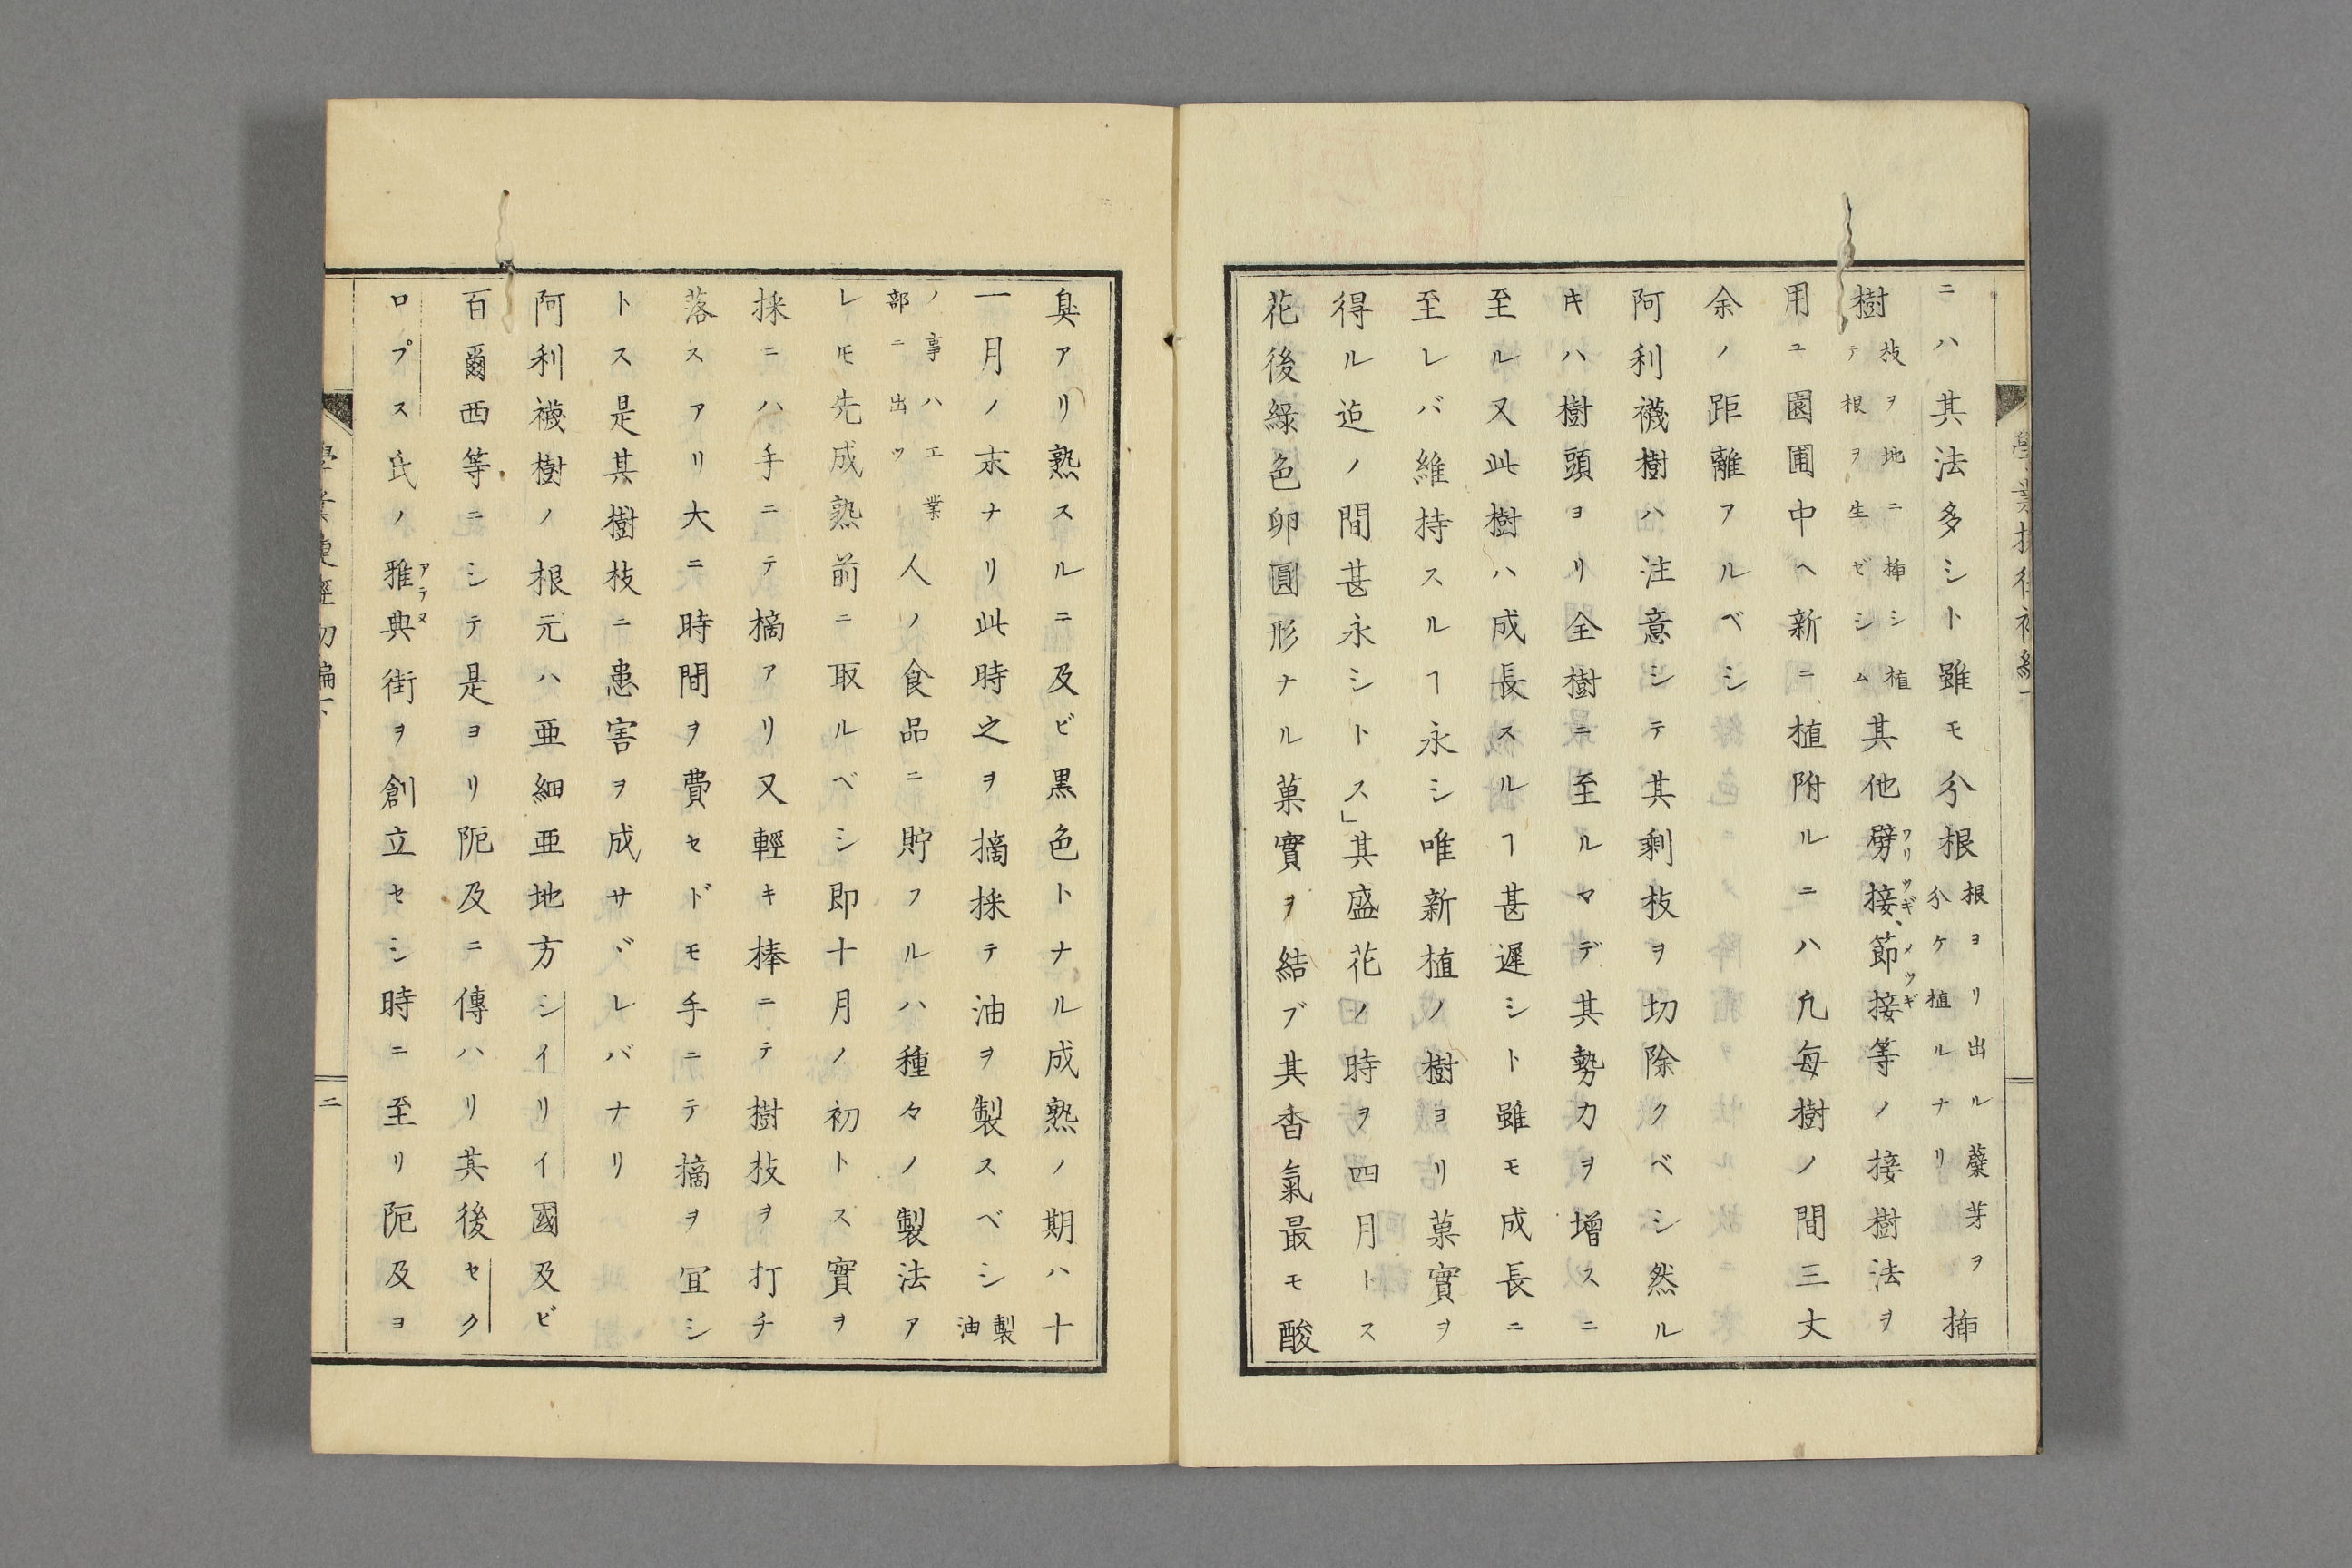 ニハ其法多シト雖モ分根根ヨリ出ル蘖芽ヲ分ケ植ルナリ挿
樹枝ヲ地ニ挿シ植テ根ヲ生ゼシム其他劈接、節接等ノ接樹法ヲ
ワリツギ
メツギ
用ユ園圃中ヘ新ニ植附ルニハ凡每樹ノ間三丈
余ノ距離アルベシ
阿利襪樹ハ注意シテ其剰枝ヲ切除クベシ然ル
キハ樹頭ヨリ全樹ニ至ルマデ其勢力ヲ增スニ
至ル又此樹ハ成長スルヿ甚遲シト雖モ成長ニ
至レバ維持スルヿ永シ唯新植ノ樹ヨリ菓實ヲ
得ル迠ノ間甚永シトス」其盛花ノ時ヲ四月トス
花後緑色卵圓形ナル菓實ヲ結ブ其香氣最モ酸
臭アリ熟スルニ及ビ黒色トナル成熟ノ期ハ十
一月ノ末ナリ此時之ヲ摘採テ油ヲ製スベシ製油
ノ事ハ工業部ニ出ツ人ノ食品ニ貯フルハ種々ノ製法ア
レ𪜈先成熟前ニ取ルベシ即十月ノ初トス實ヲ
採ニハ手ニテ摘アリ又輕キ棒ニテ樹枝ヲ打チ
落スアリ大ニ時間ヲ費セドモ手ニテ摘ヲ宜シ
トス是其樹枝ニ患害ヲ成サヾレバナリ
阿利襪樹ノ根元ハ亜細亜地方シイリイ國及ビ
百爾西等ニシテ是ヨリ阨及ニ傳ハリ其後セク
ロプス氏ノ雅典街ヲ創立セシ時ニ至リ阨及ヨ
アテヌ
二